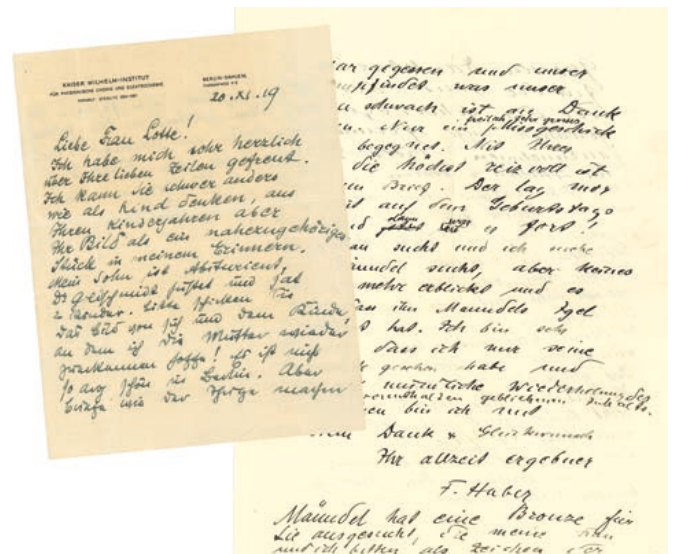 KAISER WILHELM-INSTITUT
FÜR PHYSIKALISCHE CHEMIE UND ELEKTROCHEMIE
BERLIN-DAHLEM,
20. XI. 19
Liebe Frau Lotte!
Ich habe mich sehr herzlich
über Ihre lieben Zeilen gefreut.
Ich kann Sie schwer anders
wie als Kind denken, aus
Ihren Kinderjahren aber
Ihr Bild als ein nahezugehöriges
Stück in meinem Erinnern.
Mein Sohn ist Abiturient,
und hat
2 Kinder. Bitte schicken Sie
das Bild von sich und dem Kinde,
an dem ich die Mutter wieder
zuerkennen hoffe! Es ist nicht
so arg schön in Berlin. Aber
Briefe wie der Ihrige machen
ar gegessen und unser
mpfindet was unser
schwach ist an Dank
freilich sehr grosses
en. Nur ein Missgeschick
begegnet. Mit Ihrem
die höchst reizvoll ist
Brief. Der lag mir
it auf dem Geburtstags
dann war
es fort!
au sucht und ich suche
Männdel sucht, aber keines
mehr erblickt und es
ass ihn Manndels Igel
t hat. Ich bin sehr
dass ich nur seine
gesehen habe und
mündliche Wiederholung des
gebliebenen Inhalts.
en bin ich mit
Dank & Glückwunsch
Ihr allzeit ergebner
F. Haber
Männdel hat eine Bronze für
Sie ausgesucht, die meine Frau
und ich bitten als Zeichen der